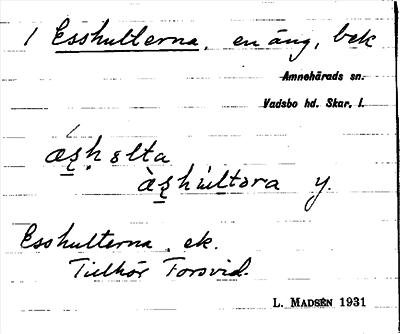 1 Esshulterna, en äng, bek
Amnehärads sn.
Vadsbo hd. Skar. l.
y.
Esshulterna, ek.
Tillhör Torsvid.
L. MADSÉN 1931